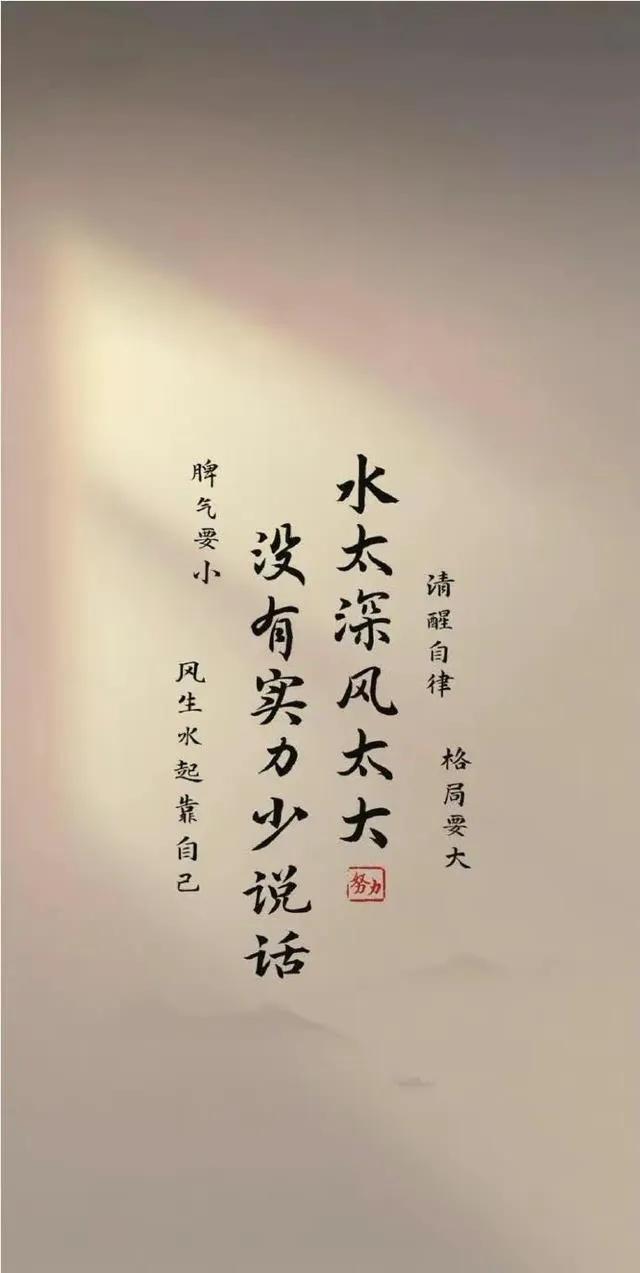 格局要大
清醒自律
水太深风太大
努力
没有实力少说话
脾气要小
风生水起靠自己